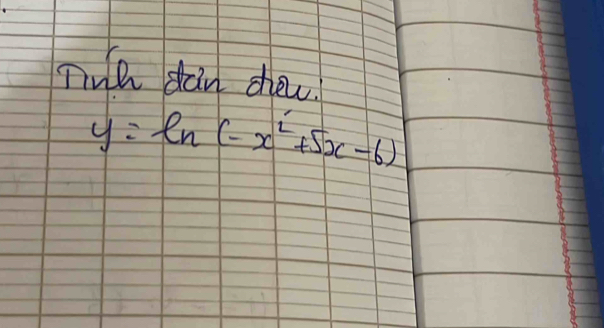 Tính đơn điệu:
y = ln (-x² + 5x - 6)